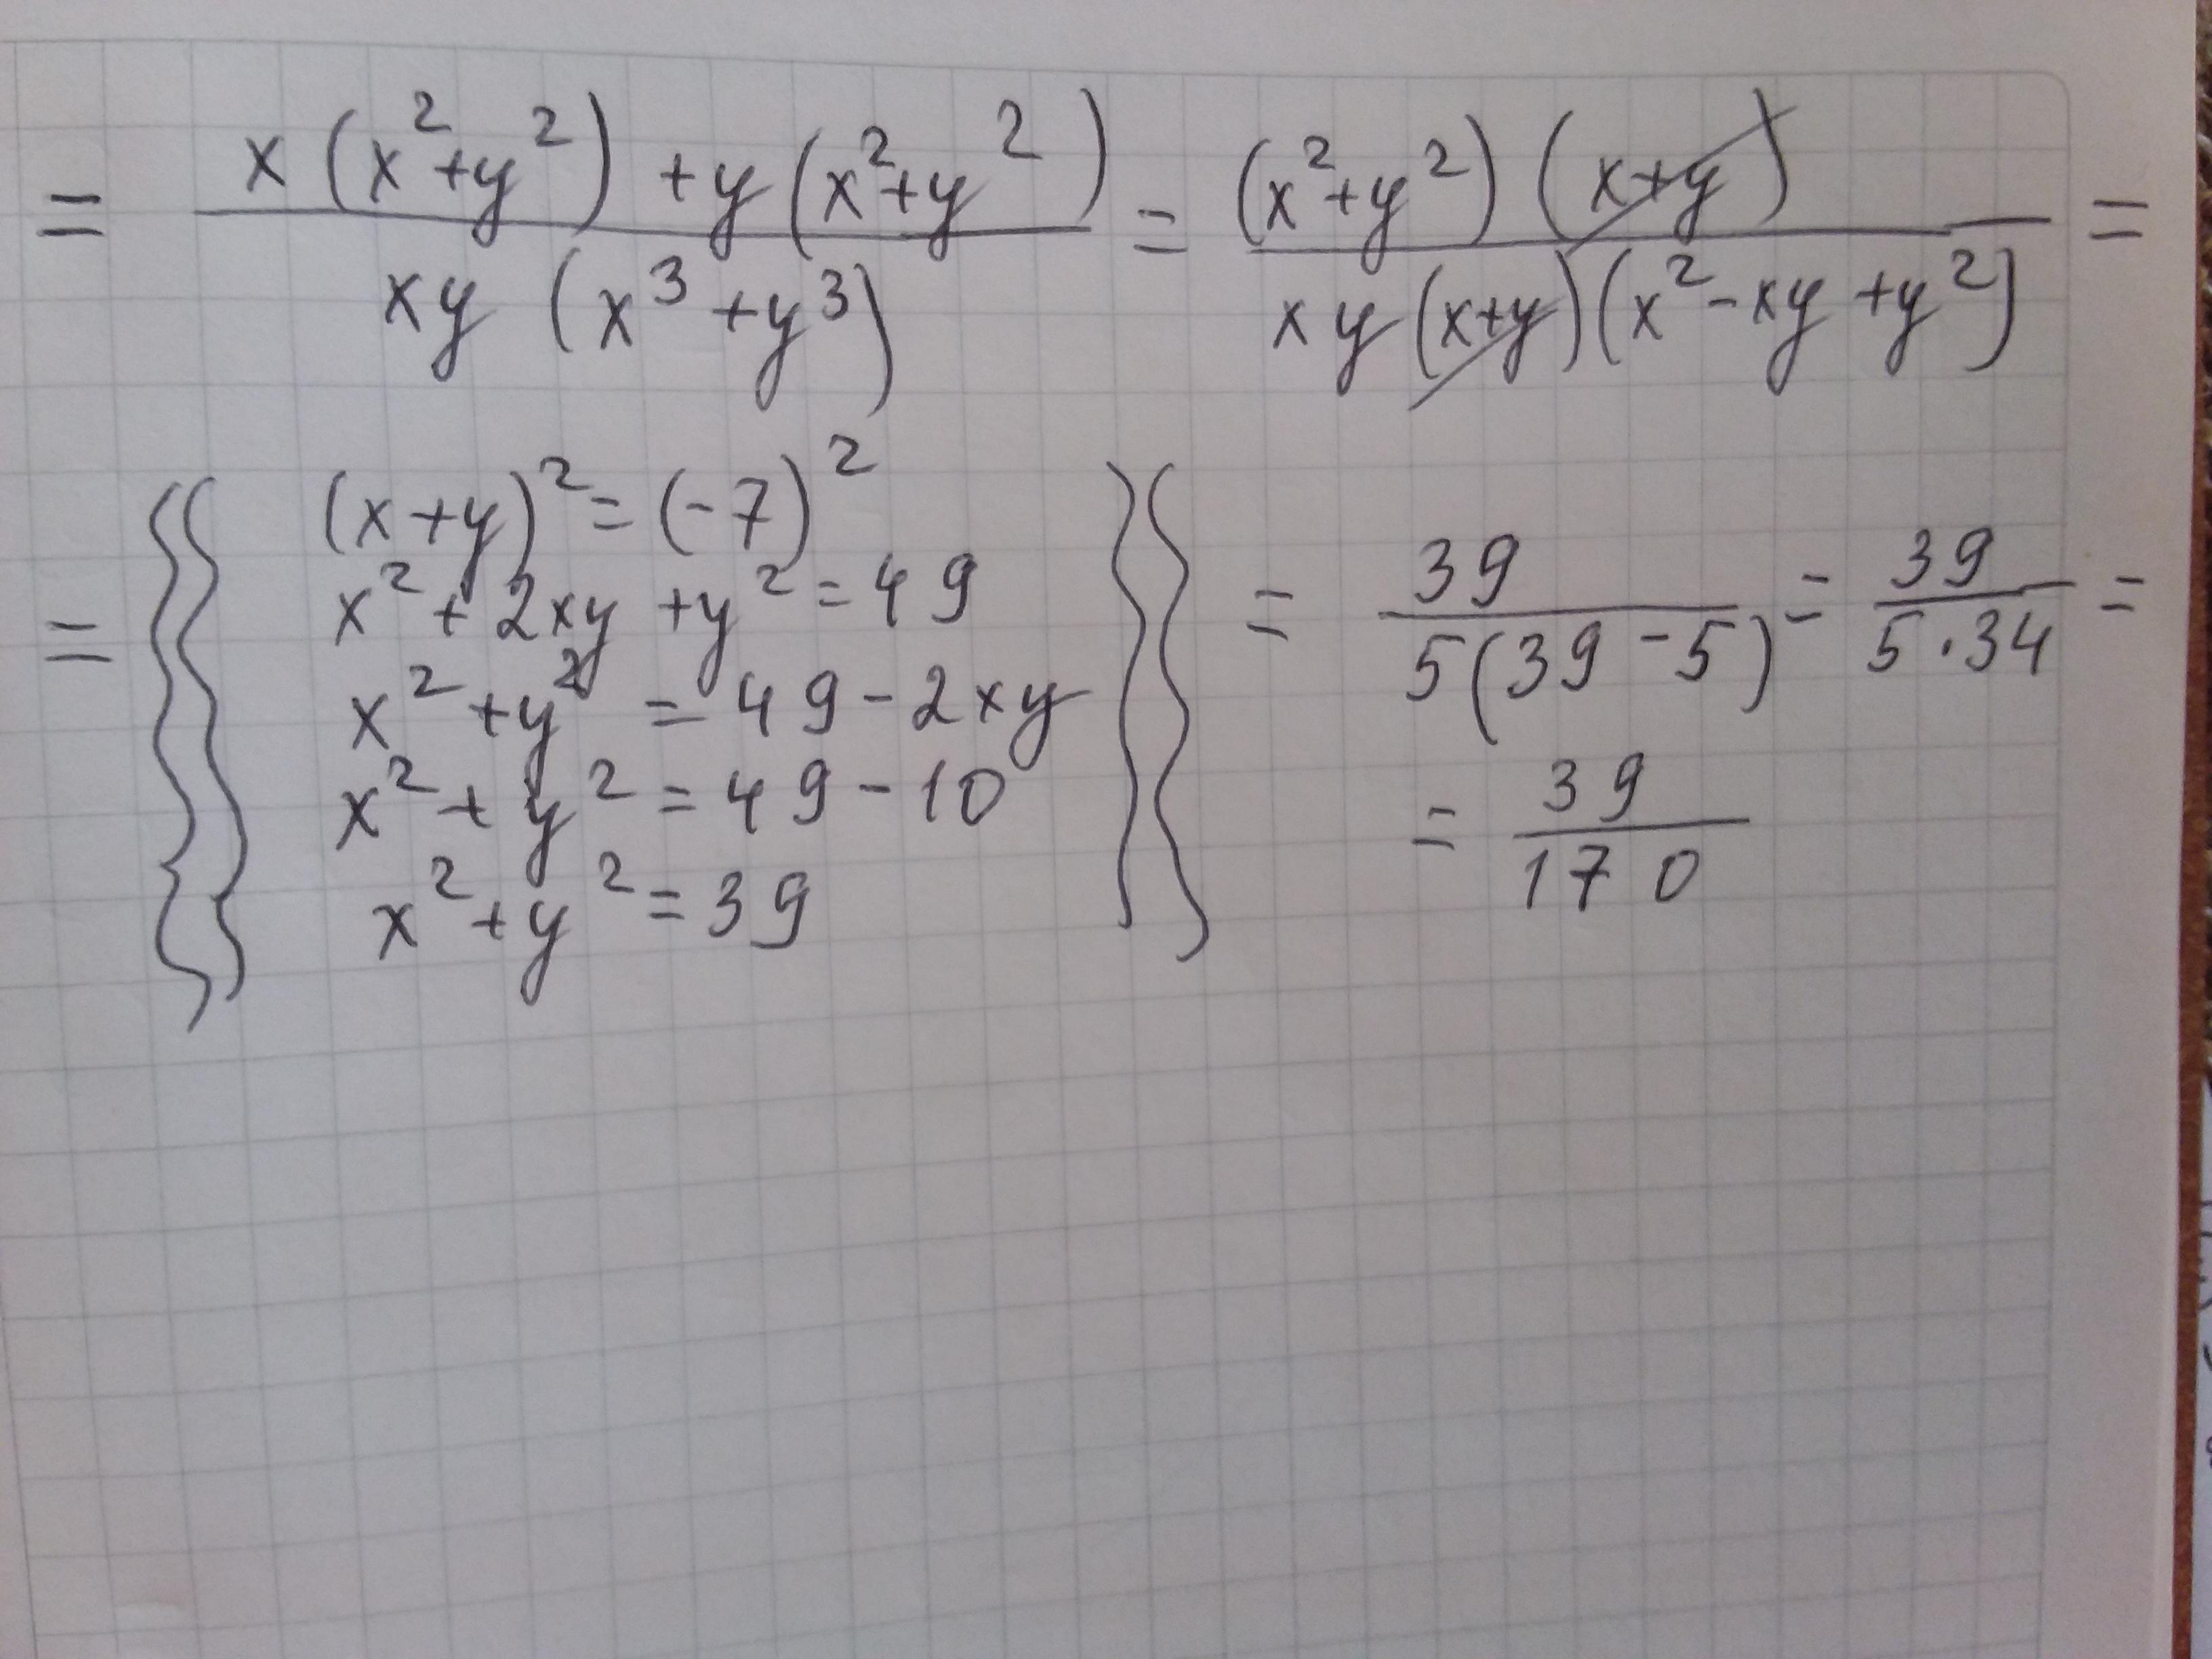 = x(x²+y²)+y(x²+y²) / xy(x³+y³) = (x²+y²)(x+y) / xy(x+y)(x²-xy+y²) =
= {{ (x+y)²=(-7)²
x²+2xy+y²=49
x²+y²=49-2xy
x²+y²=49-10
x²+y²=39 }}
= 39 / 5(39-5) = 39 / 5·34 =
= 39 / 170